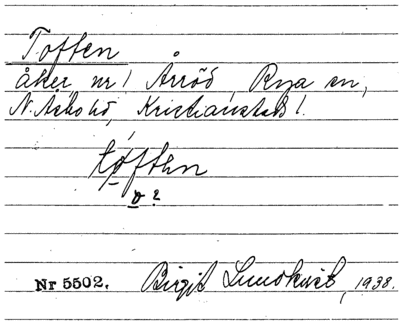 Toften
åker, nr 1 Årröd, Rya sn,
N. Åsbo hd, Kristianstads l.
tọften
o ?
Nr 5502. Birgit Lundkvist, 1938.